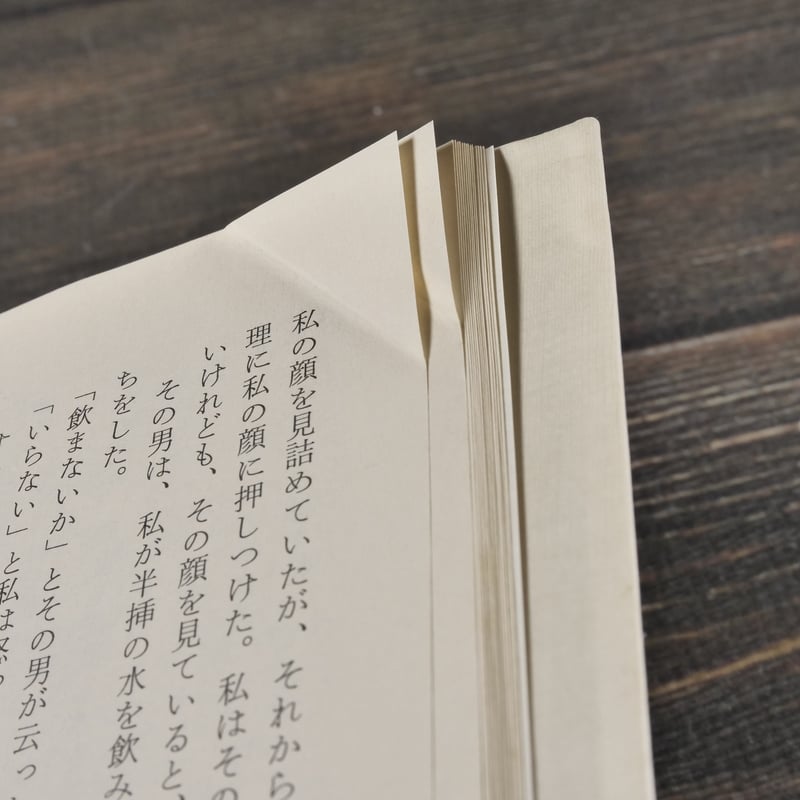 私の顔を見詰めていたが、それから
理に私の顔に押しつけた。私はその
いけれども、その顔を見ていると、
その男は、私が半挿の水を飲み
ちをした。
「飲まないか」とその男が云っ
「いらない」と私は怒
す